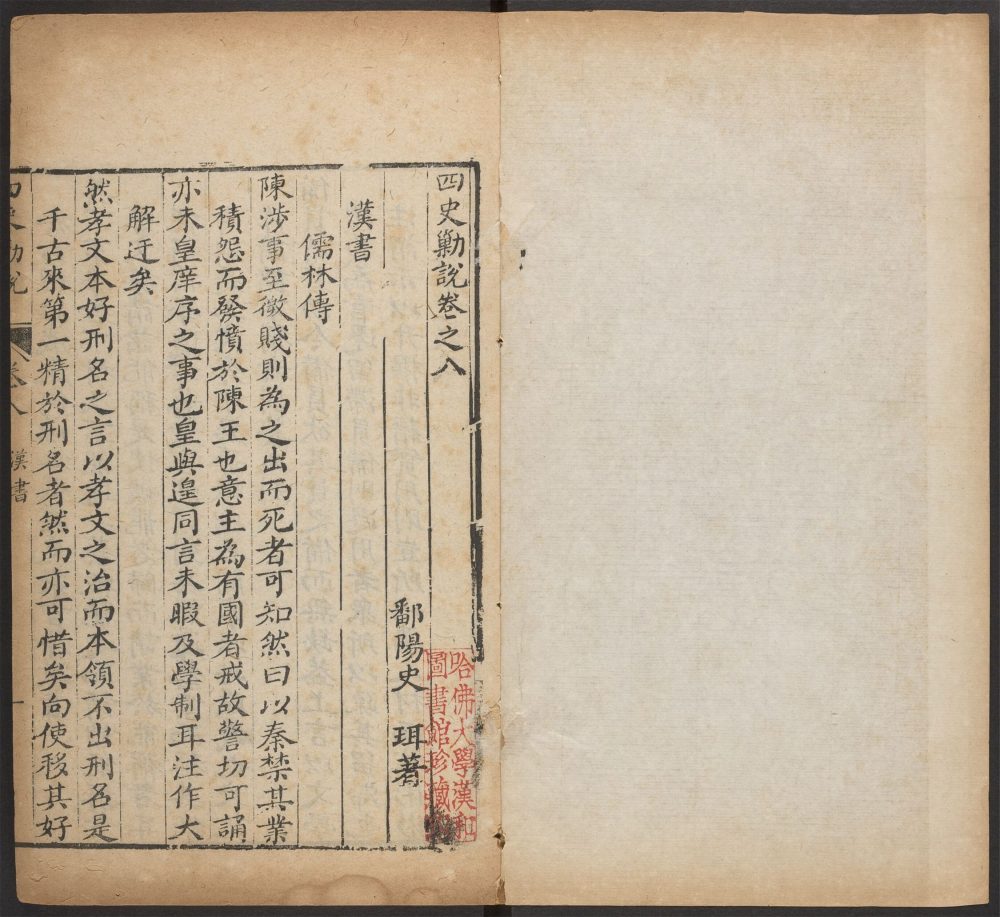 四史勦說卷之八
鄱陽史 珥著
漢書
儒林傳
陳涉事至微賤則為之出而死者可知然曰以秦禁其業
積怨而發憤於陳王也意主為有國者戒故警切可誦
亦未皇庠序之事也皇與遑同言未暇及學制耳注作大
解迂矣
然孝文本好刑名之言以孝文之治而本領不出刑名是
千古來第一精於刑名者然而亦可惜矣向使移其好
四史勦說 卷八 漢書 一
哈佛大學漢和
圖書館珍藏